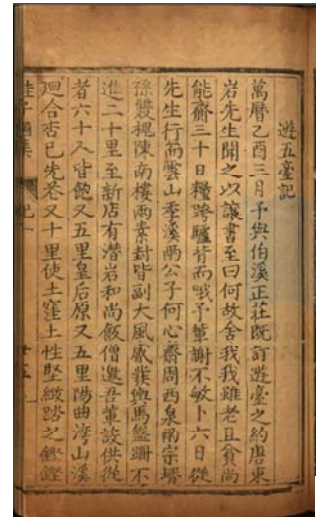 遊五臺記
萬曆乙酉三月予與伯溪正莊既訂遊臺之約唐東
岩先生聞之以讓書至曰何故舍我我雖老且貧尚
能齋三十日糧跨驢背而哦予輩謝不敏卜六日從
先生行而雲山季溪兩公子何心齋周西泉兩宗壻
孫雙槐陳南樓兩素封皆副大風宬輿馬盤跚不
進二十里至新店有潜岩和尚飯僧邀吾輩設供從
者六十人皆飽又五里皇后原又五里陽曲灣山溪
迴合杏已先花又十里使土窪土性堅緻踏之鏗鏗